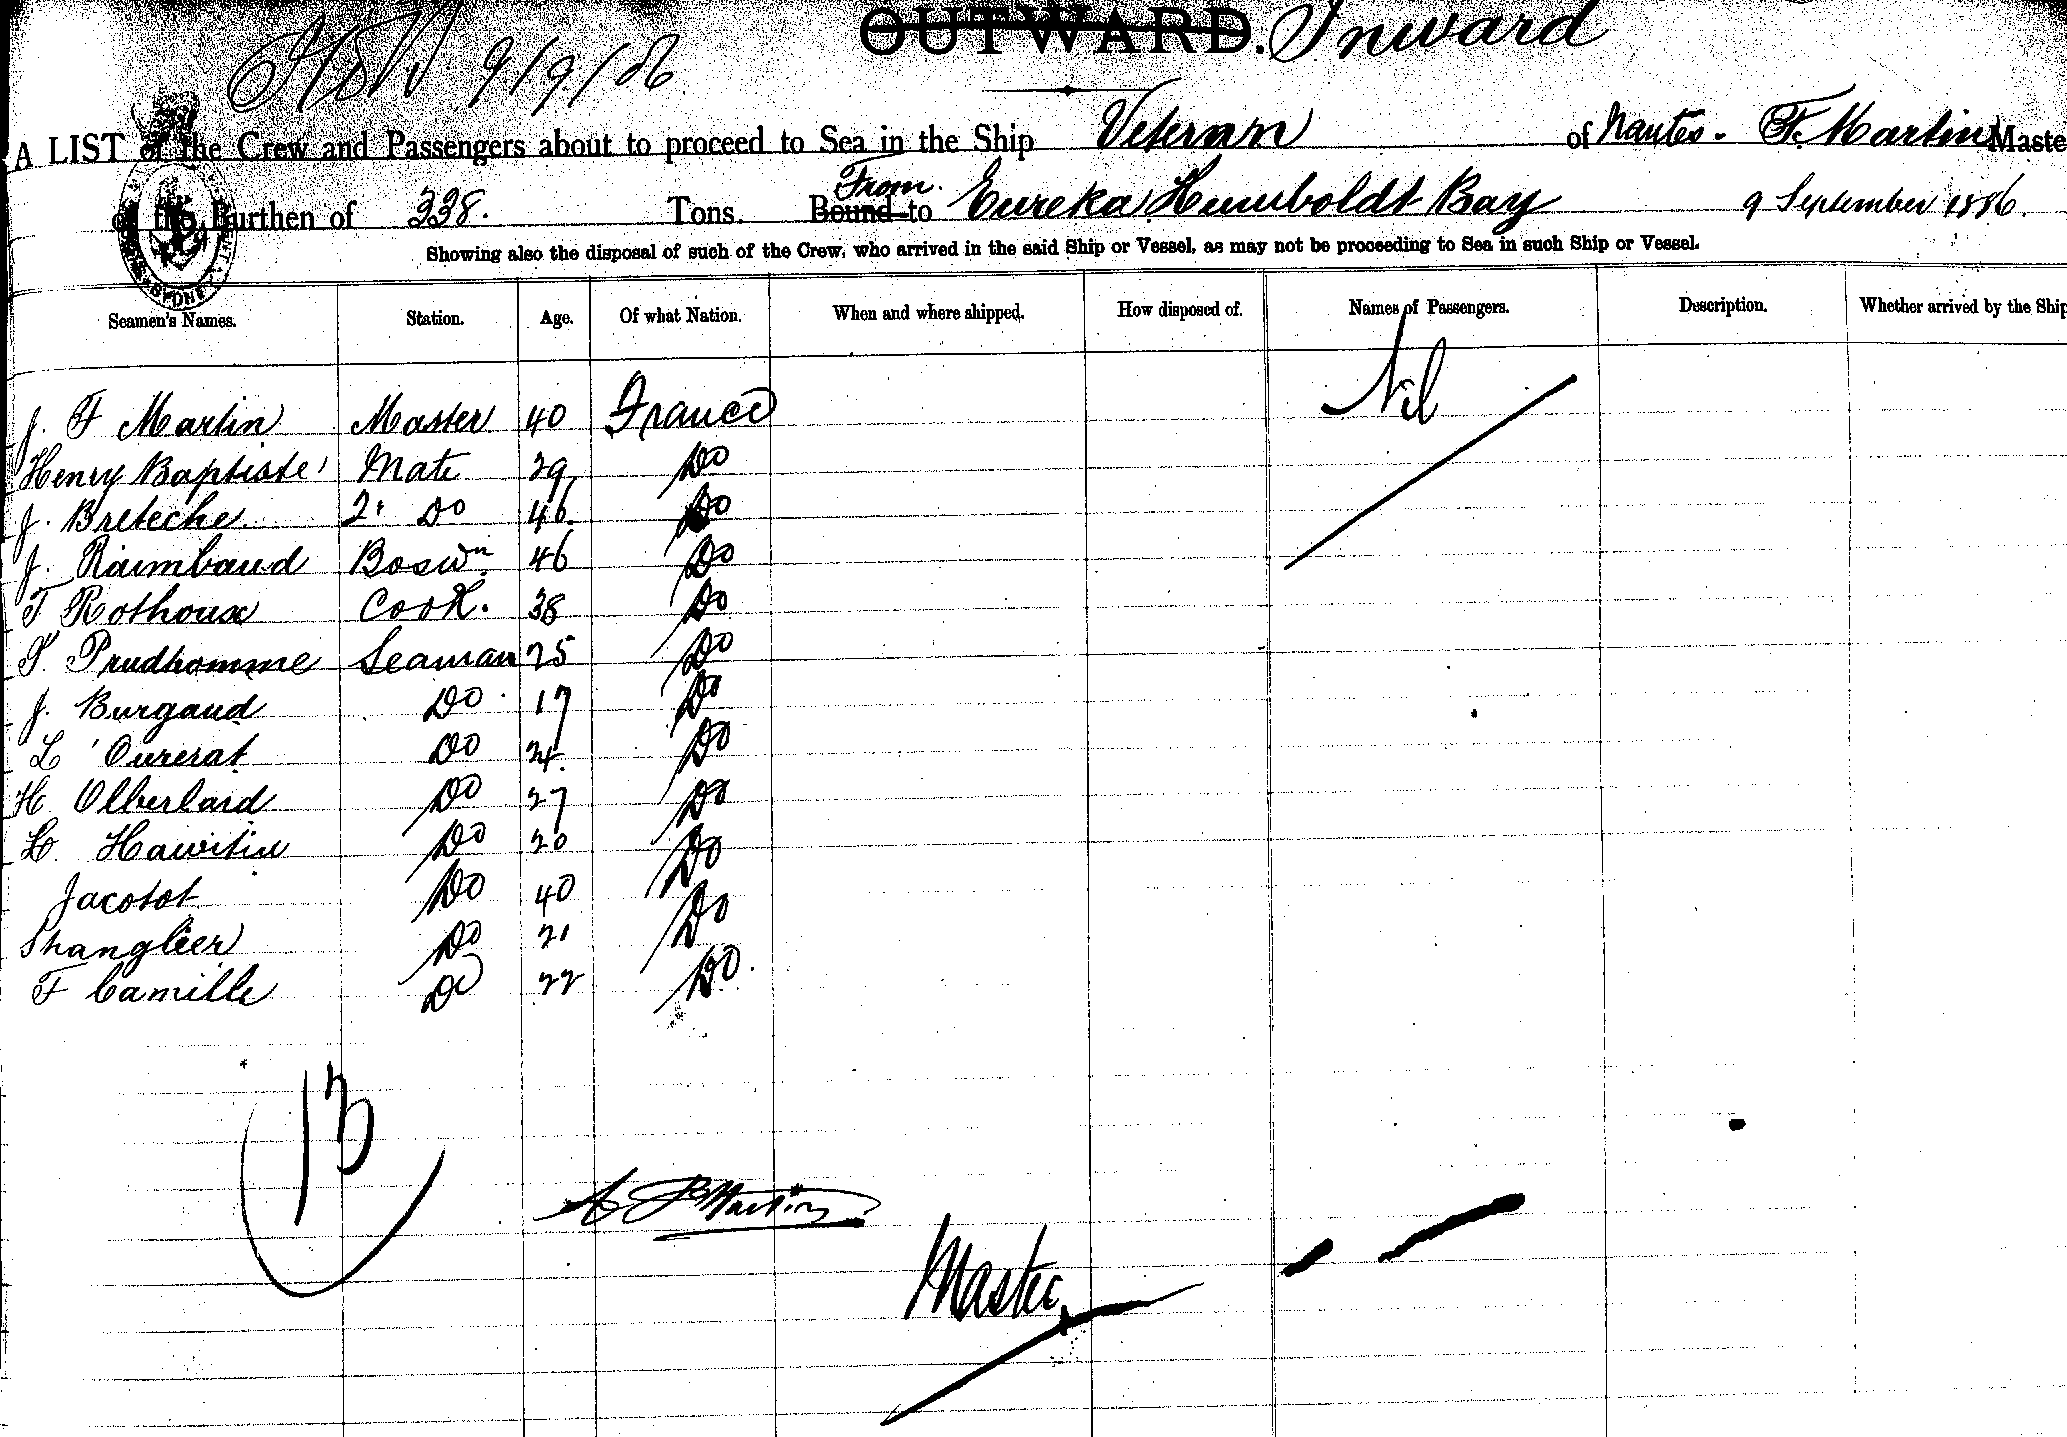 OUTWARD. Inward
9/9/86
A LIST of the Crew and Passengers about to proceed to Sea in the Ship Veteran of Nantes. F. Martin Maste
of the Burthen of 338. Tons. Bound to From Eureka Humboldt Bay 9 September 1886.
Showing also the disposal of such of the Crew, who arrived in the said Ship or Vessel, as may not be proceeding to Sea in such Ship or Vessel.
Seamen's Names. Station. Age. Of what Nation. When and where shipped. How disposed of. Names of Passengers. Description. Whether arrived by the Ship
J. F Martin Master 40 France Nil
Henry Baptiste Mate 29 Do
J. Breteche 2 Do 46 Do
J. Raimbaud Boswn 46 Do
F Rothoux Cook. 38 Do
P. Prudhomme Seaman 25 Do
J. Burgaud Do 17 Do
L Ourerat Do 24 Do
H Olberlard Do 27 Do
Do 20 Do
Jacotot Do 40 Do
Do 21 Do
F Camille Do 22 Do.
13
Martin
Master